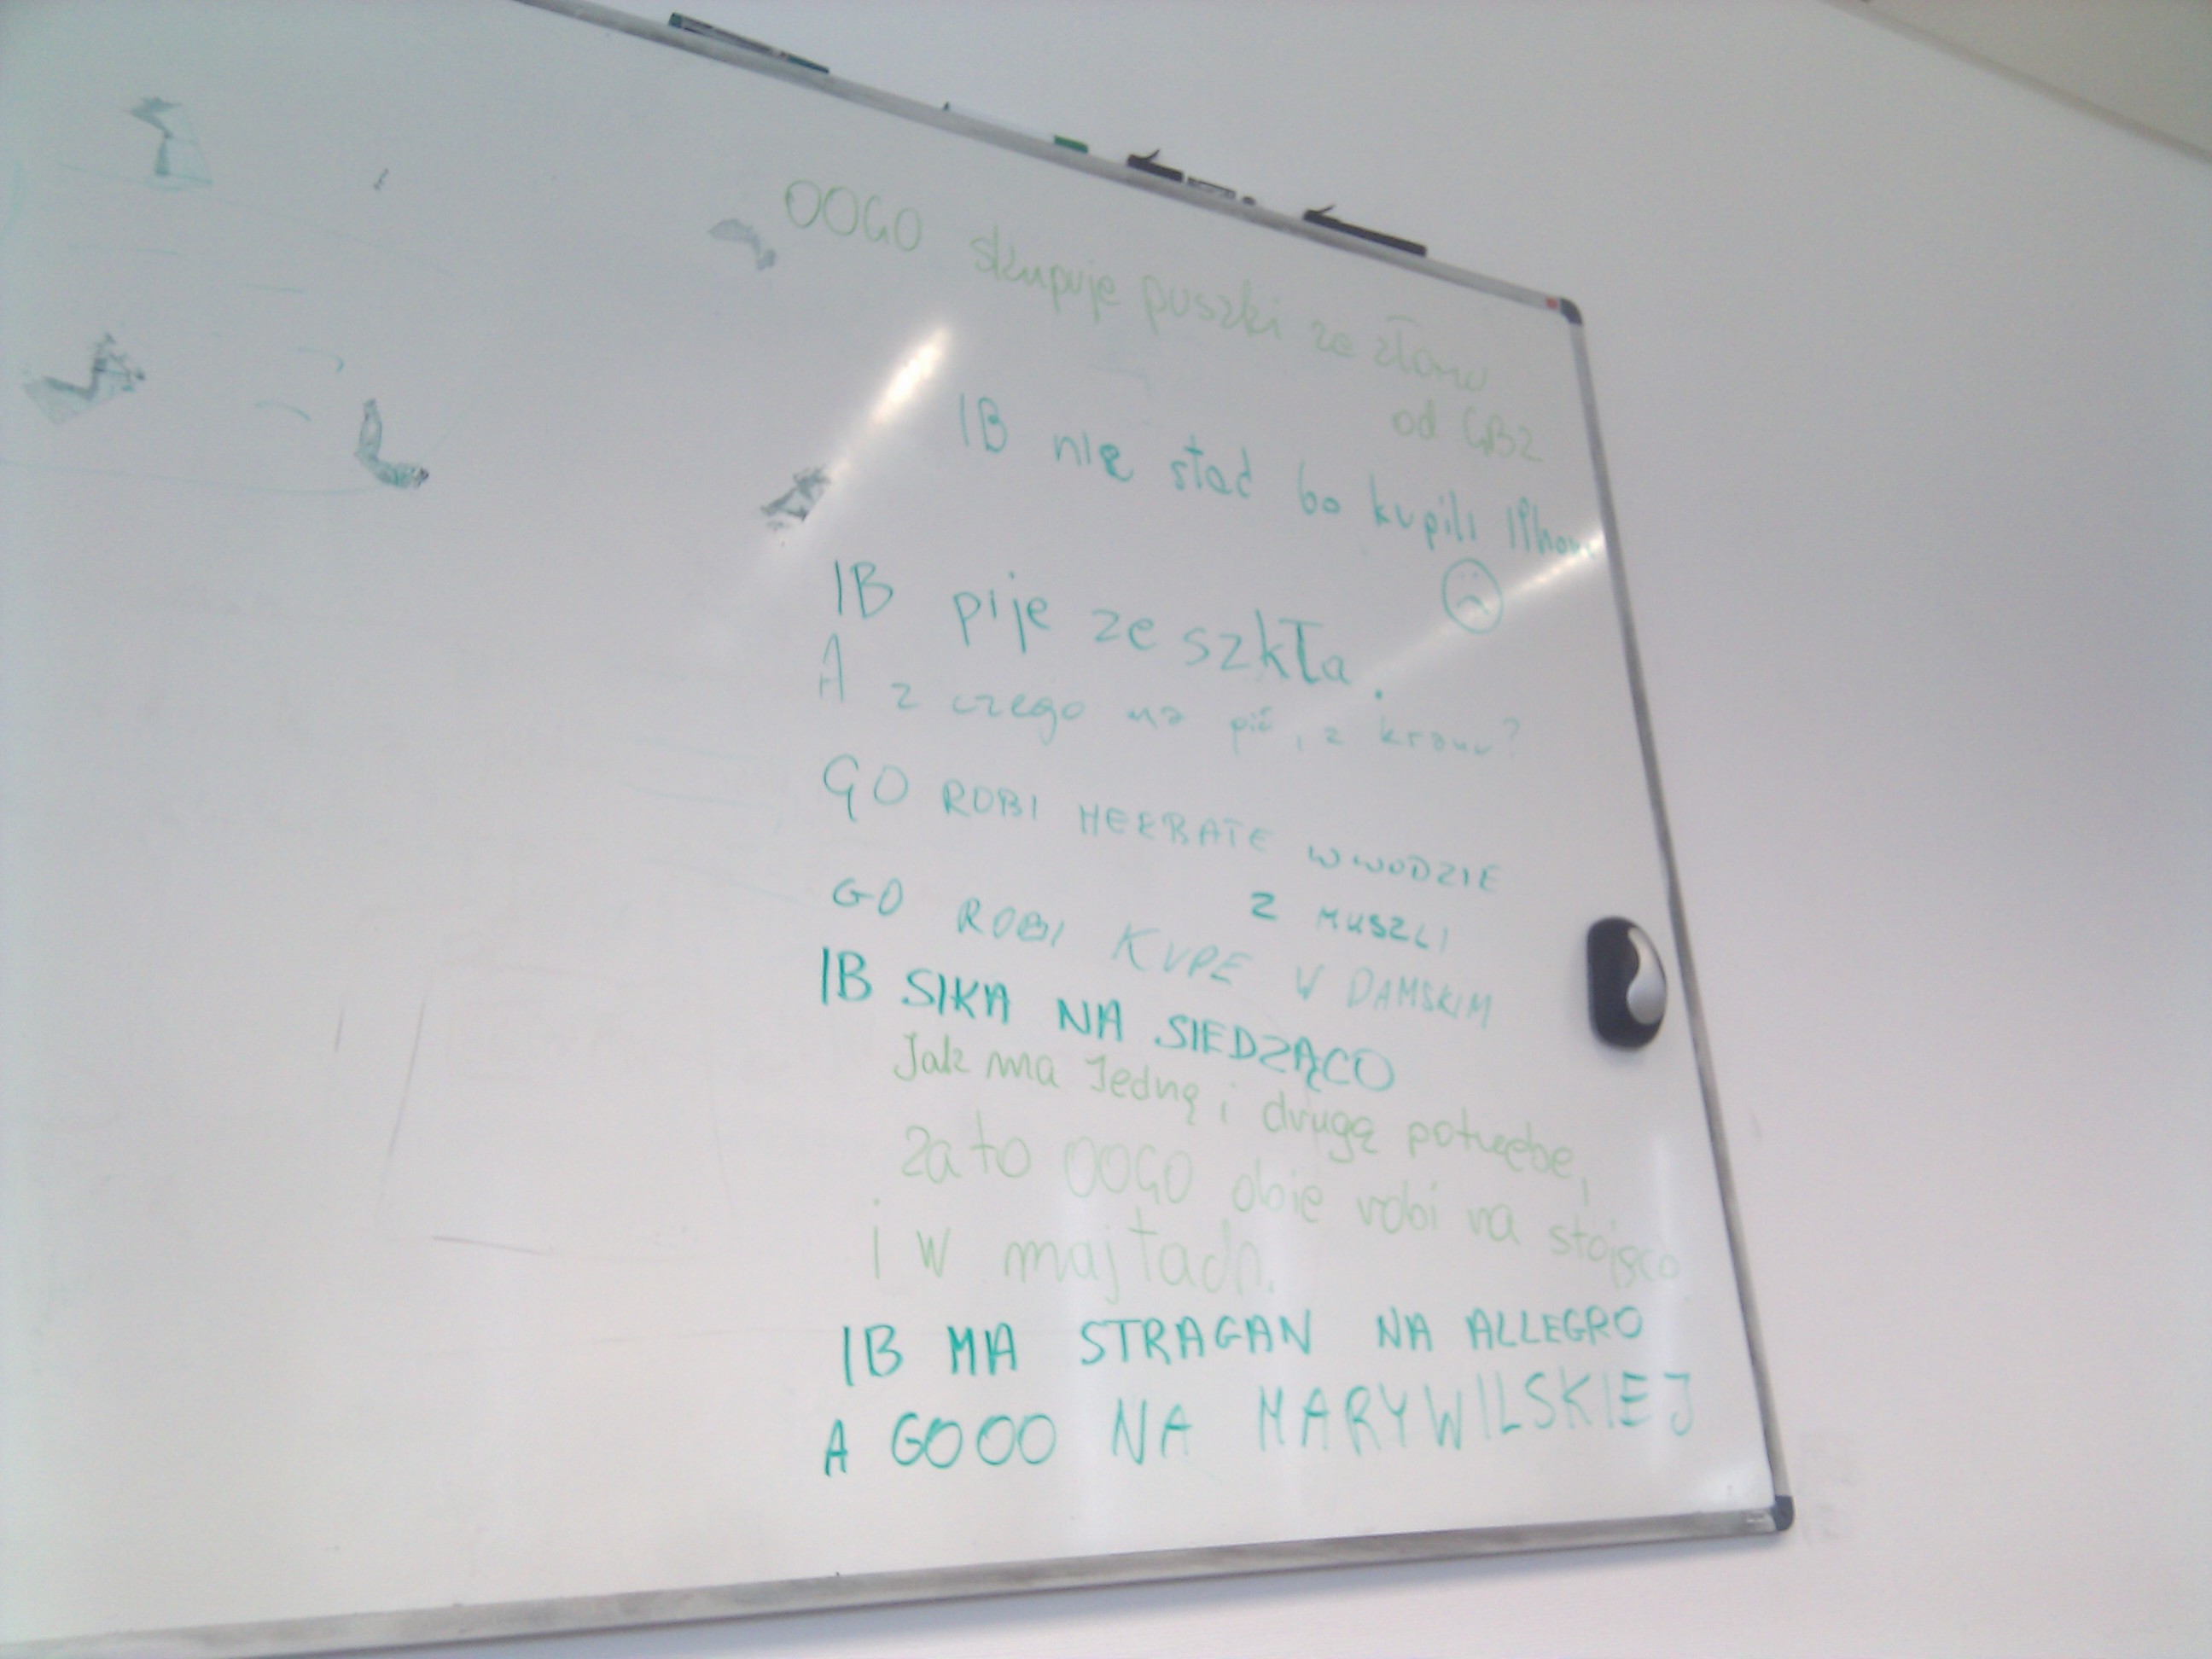 OOGO skupuje puszki ze złomu
od GBZ
IB nie stać bo kupili IPhone
IB pije ze szkła.
A z czego ma pić, z kranu?
GO ROBI HERBATE W WODZIE
Z MUSZLI
GO ROBI KUPE W DAMSKIM
IB SIKA NA SIEDZĄCO
Jak ma jedną i drugą potrzebę,
za to OOGO obie robi na stojąco
i w majtach.
IB MA STRAGAN NA ALLEGRO
A GOOO NA MARYWILSKIEJ